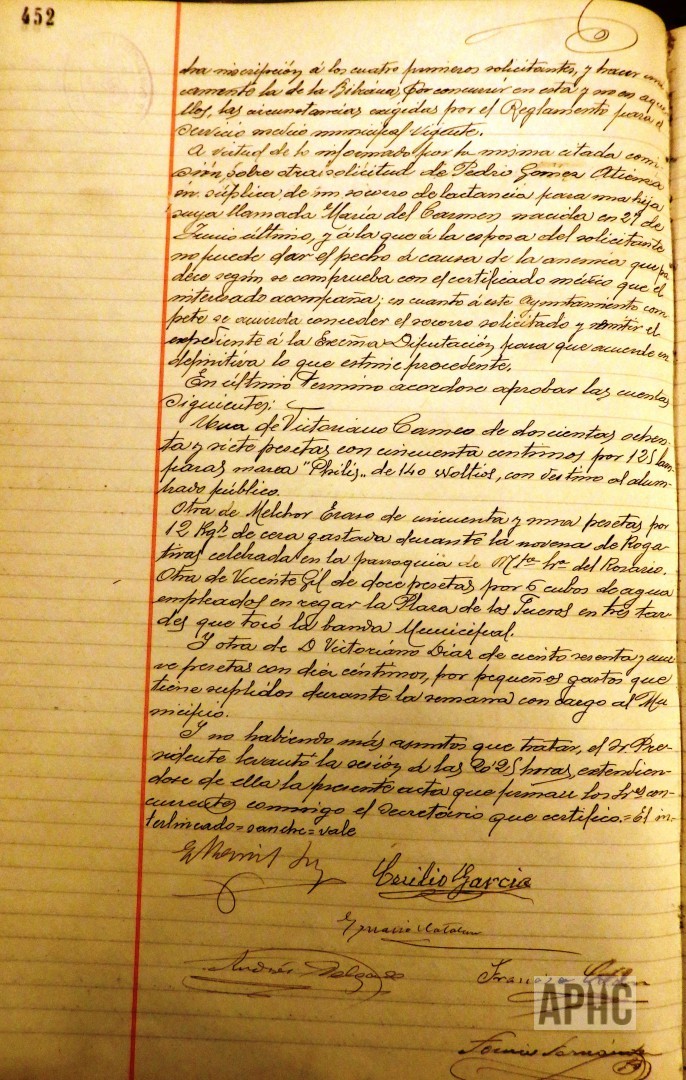 452
dra inscripción á los cuatro primeros solicitantes, y hacer úni
camente la de la Bibiana, por concurrir en esta y no en aque
llos, las circunstancias exigidas por el Reglamento para el
servicio medico municipal vigente.
A virtud de lo informado por la misma citada comi
sión, sobre otra solicitud de Pedro Gómez Atienza
en súplica de un socorro de lactancia para una hija
suya llamada María del Carmen nacida en 29 de
Junio último, y á la que á la esposa del solicitante
no puede dar el pecho á causa de la anemia que pa
dece según se comprueba con el certificado médico que el
interesado acompaña; en cuanto á este Ayuntamiento com
pete se acuerda conceder el socorro solicitado y remitir el
expediente á la Excma Diputación, para que acuerde en
definitiva lo que estime procedente.
En último termino acordose aprobar las cuentas
siguientes:
Una de Vitoriano Cameo de doscientas ochen
ta y siete pesetas con cincuenta centimos por 125 lam
paras marca "Philis" de 140 Woltios, con destino al alum
brado público.
Otra de Melchor Eraso de cincuenta y una pesetas por
12 Kgs de cera gastada durante la novena de Roga
tivas celebrada en la parroquia de Ntra Sra del Rosario.
Otra de Vicente Gil de doce pesetas por 6 cubos de agua
empleados en regar la Plaza de los Fueros en tres tar
des que tocó la banda Municipal.
Y otra de D Victoriano Díaz de ciento sesenta y nue
ve pesetas con diez céntimos, por pequeños gastos que
tiene suplidos durante la semana con cargo al Mu
nicipio.
Y no habiendo más asuntos que tratar, el Sr. Pre
sidente levantó la sesión á las 20'25 horas, extendien
dose de ella la presente acta que firman los Sres con
currentes conmigo el Secretario que certifico.= El in
terlineado= =vale
Cecilio García
Andrés Delgado
APHC